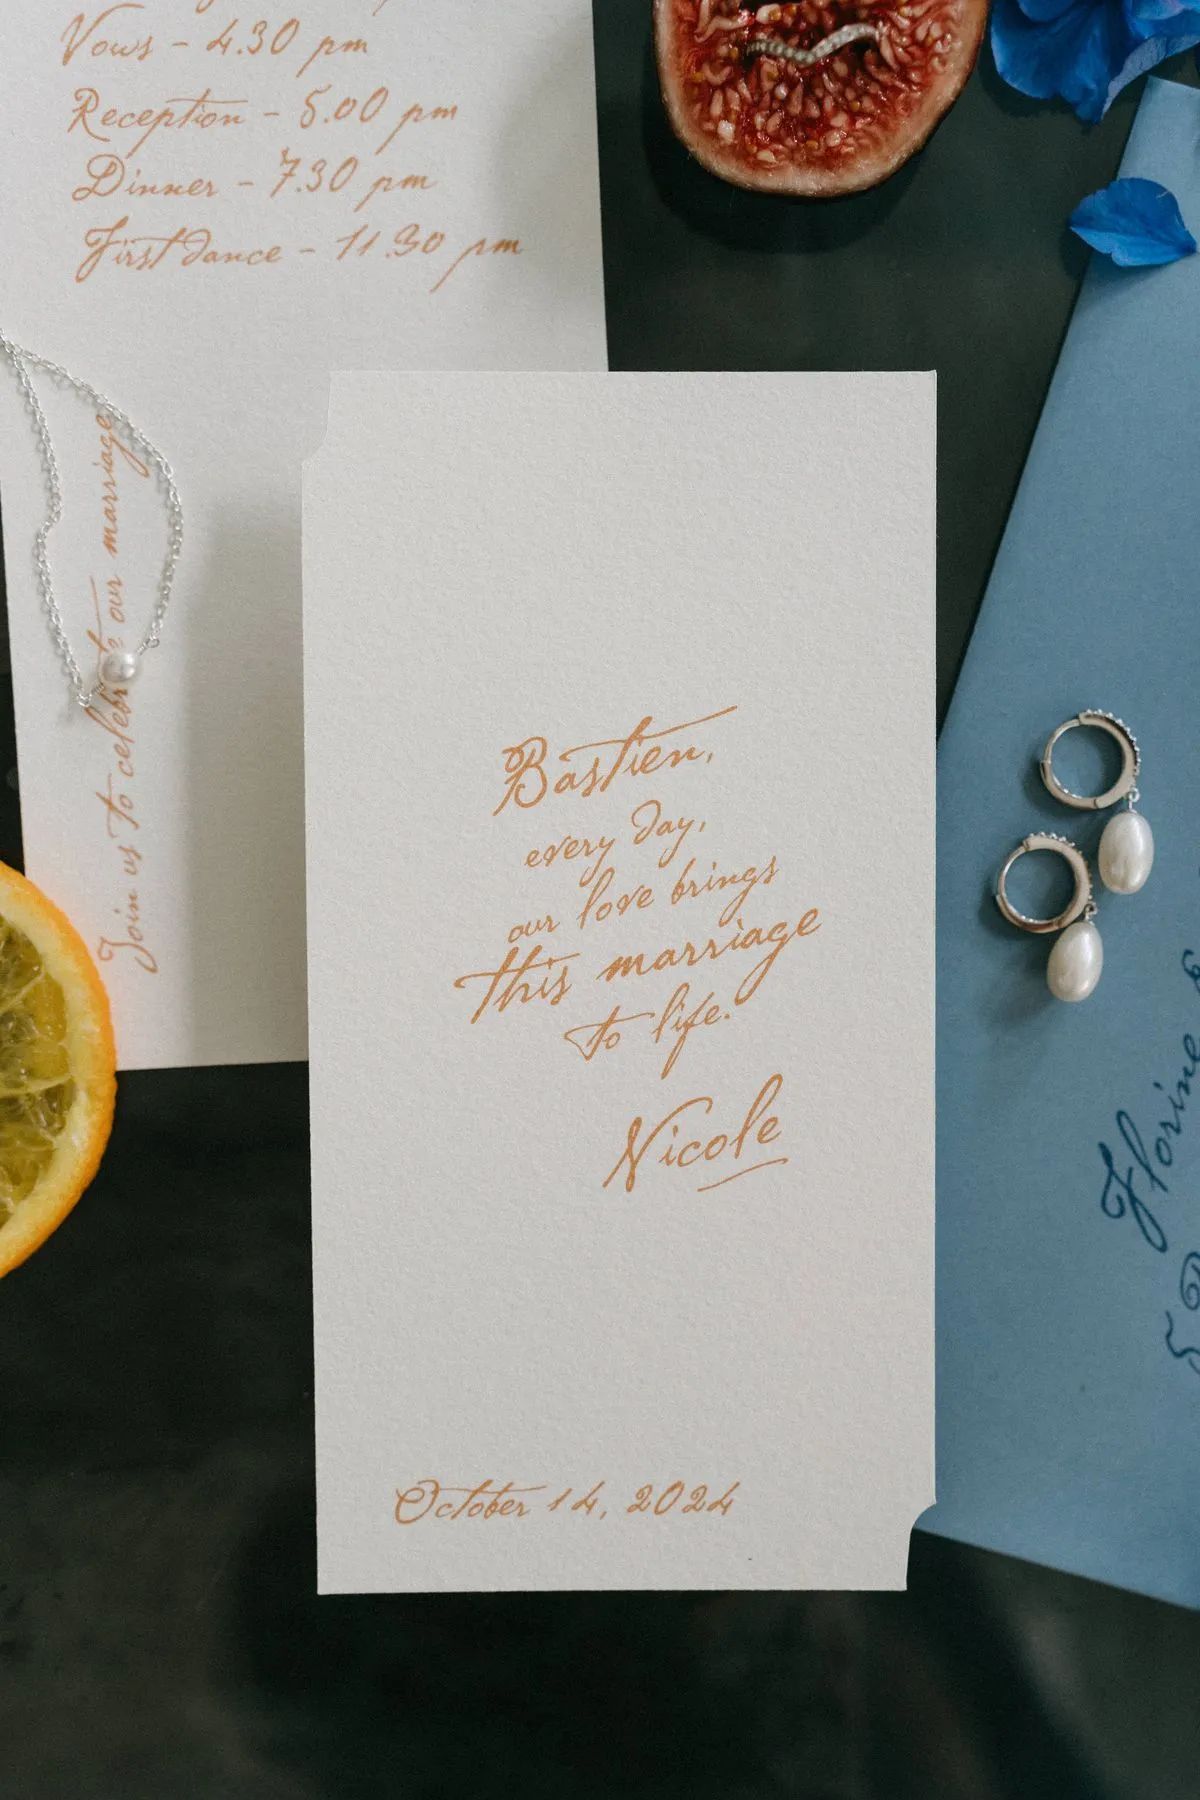 Vows - 4.30 pm
Reception - 5.00 pm
Dinner - 7.30 pm
First dance - 11.30 pm
Join us to celebrate our marriage
Bastien,
every day,
our love brings
this marriage
to life.
Nicole
October 14, 2024
Florine
5